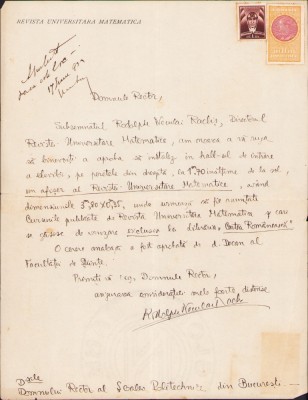 REVISTA UNIVERSITARA MATEMATICA
Domnule Rector,
Subsemnatul Rodolphe Nicolai Raclis, Directorul
Revistei Universitare Matematice, am onoarea a vă ruga
să binevoiți a aproba să instalez în hall-ul de intrare
a elevilor, pe peretele din dreapta, la 1.70 înălțime de la sol,
un afișier al Revistei Universitare Matematice, având
dimensiunile
Cursurile publicate de Revista Universitara Matematica și care
se găsesc de vânzare exclusiv la librăria „Cartea Românească”
O cerere analoagă a fost aprobată de d. Decan al
Facultății de Științe.
Primiți vă rog, Domnule Rector,
asigurarea considerației mele foarte distinse
Domnului Rector al Școalei Politechnice din București